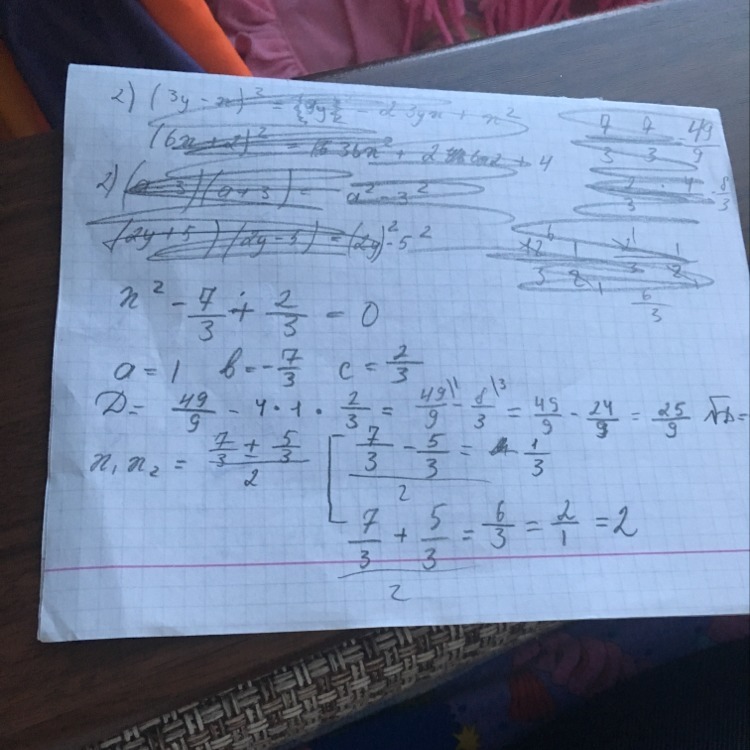 2) (3y - x)² = - 2 3yx + x²
(6x + 2)² = 36x² + 2 + 4
2) (a - 3)(a + 3) = a² - 3²
(2y + 5)(2y - 5) = (2y)² - 5²
7/3 7/3 = 49/9
8/3
6/3
x² - 7/3 + 2/3 = 0
a = 1 b = -7/3 c = 2/3
D = 49/9 - 4 · 1 · 2/3 = 49/9 - 8/3 = 49/9 - 24/9 = 25/9 √D =
x₁ x₂ = (7/3 ± 5/3)/2 [ (7/3 - 5/3)/2 = 1/3
(7/3 + 5/3)/2 = 6/3 = 2/1 = 2